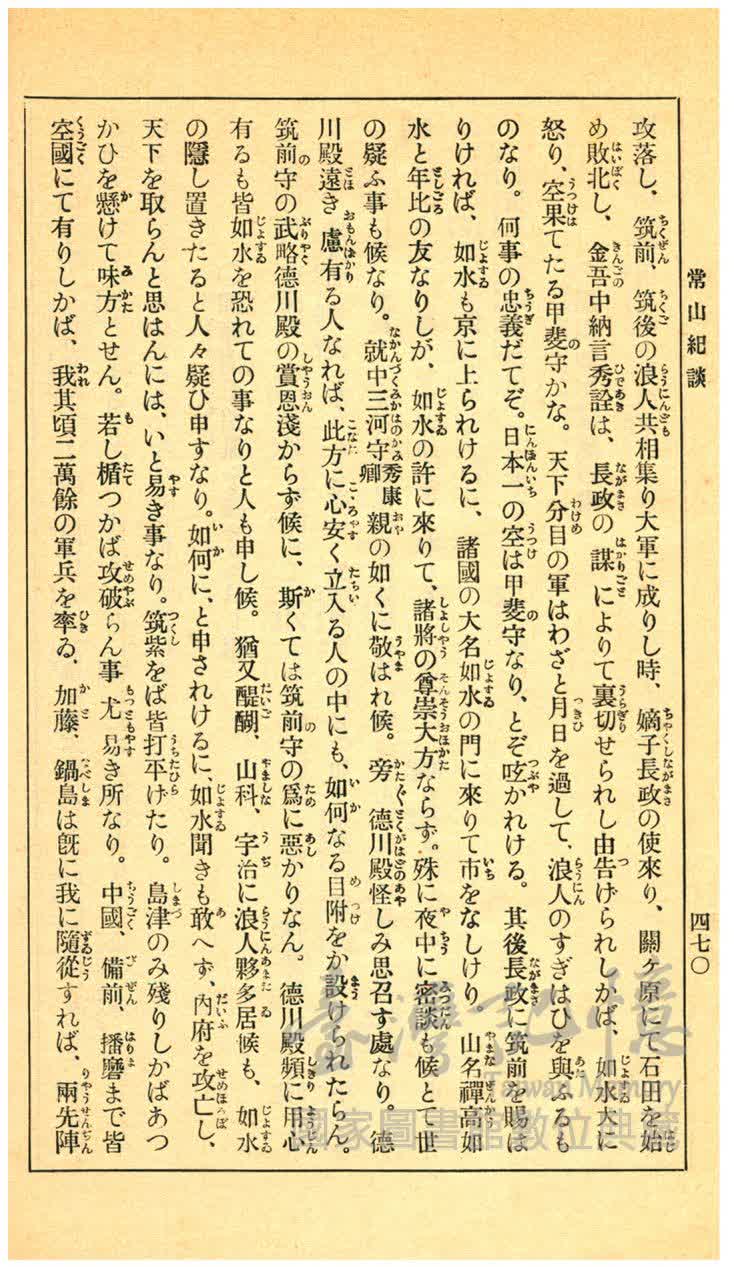 常山紀談
四七〇
攻落し、筑前、筑後の浪人共相集り大軍に成りし時、嫡子長政の使來り、關ヶ原にて石田を始
め敗北し、金吾中納言秀詮は、長政の謀によりて裏切せられし由告げられしかば、如水大に
怒り、空果てたる甲斐守かな。天下分目の軍はわざと月日を過して、浪人のすぎはひを與ふるも
のなり。何事の忠義だてぞ。日本一の空は甲斐守なり、とぞ呟かれける。其後長政に筑前を賜は
りければ、如水も京に上られけるに、諸國の大名如水の門に來りて市をなしけり。山名禪高如
水と年比の友なりしが、如水の許に來りて、諸將の尊崇大方ならず。殊に夜中に密談も候とて世
の疑ふ事も候なり。就中三河守秀康卿親の如くに敬はれ候。旁德川殿怪しみ思召す處なり。德
川殿遠き慮有る人なれば、此方に心安く立入る人の中にも、如何なる目附をか設けられたらん。
筑前守の武略德川殿の賞恩淺からず候に、斯くては筑前守の爲に惡かりなん。德川殿頻に用心
有るも皆如水を恐れての事なりと人も申し候。猶又醍醐、山科、宇治に浪人夥多居候も、如水
の隱し置きたると人々疑ひ申すなり。如何に、と申されけるに、如水聞きも敢へず、內府を攻亡し、
天下を取らんと思はんには、いと易き事なり。筑紫をば皆打平げたり。島津のみ殘りしかばあつ
かひを懸けて味方とせん。若し楯つかば攻破らん事尤易き所なり。中國、備前、播磨まで皆
空國にて有りしかば、我其頃二萬餘の軍兵を率ゐ、加藤、鍋島は旣に我に隨從すれば、兩先陣
臺灣記憶
Taiwan Memory
國家圖書館數位典藏